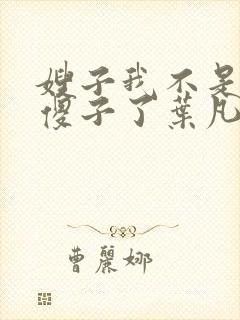 嫂子我不是
傻子了葉凡
曹麗娜